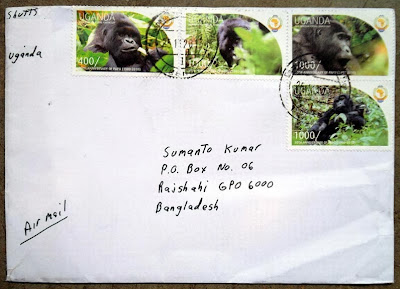 Shutts
Uganda
UGANDA
400/
UGANDA
UGANDA
1000/
UGANDA
1000/
Sumanto Kumar
P.O. Box No. 06
Rajshahi GPO 6000
Bangladesh
Air Mail